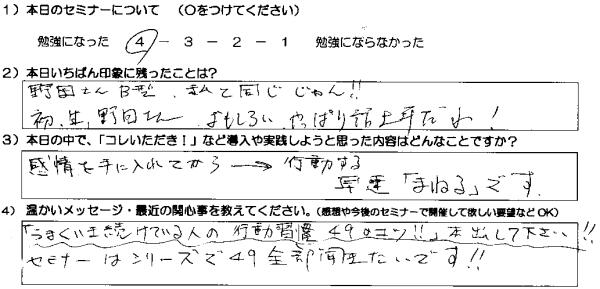 1）本日のセミナーについて （○をつけてください）
勉強になった ４－３－２－１ 勉強にならなかった
2）本日いちばん印象に残ったことは？
野田さんB型、私と同じじゃん!!
初、生、野田さん おもしろい、やっぱり話上手だわ！
3）本日の中で、「コレいただき！」など導入や実践しようと思った内容はどんなことですか？
感情を手に入れてから → 行動する
早速「まねる」です
4）温かいメッセージ・最近の関心事を教えてください。（感想や今後のセミナーで開催して欲しい要望などOK）
「うまくいき続けている人の行動習慣 49のコツ!!」本出して下さい!!
セミナーはシリーズで49全部聞きたいです!!